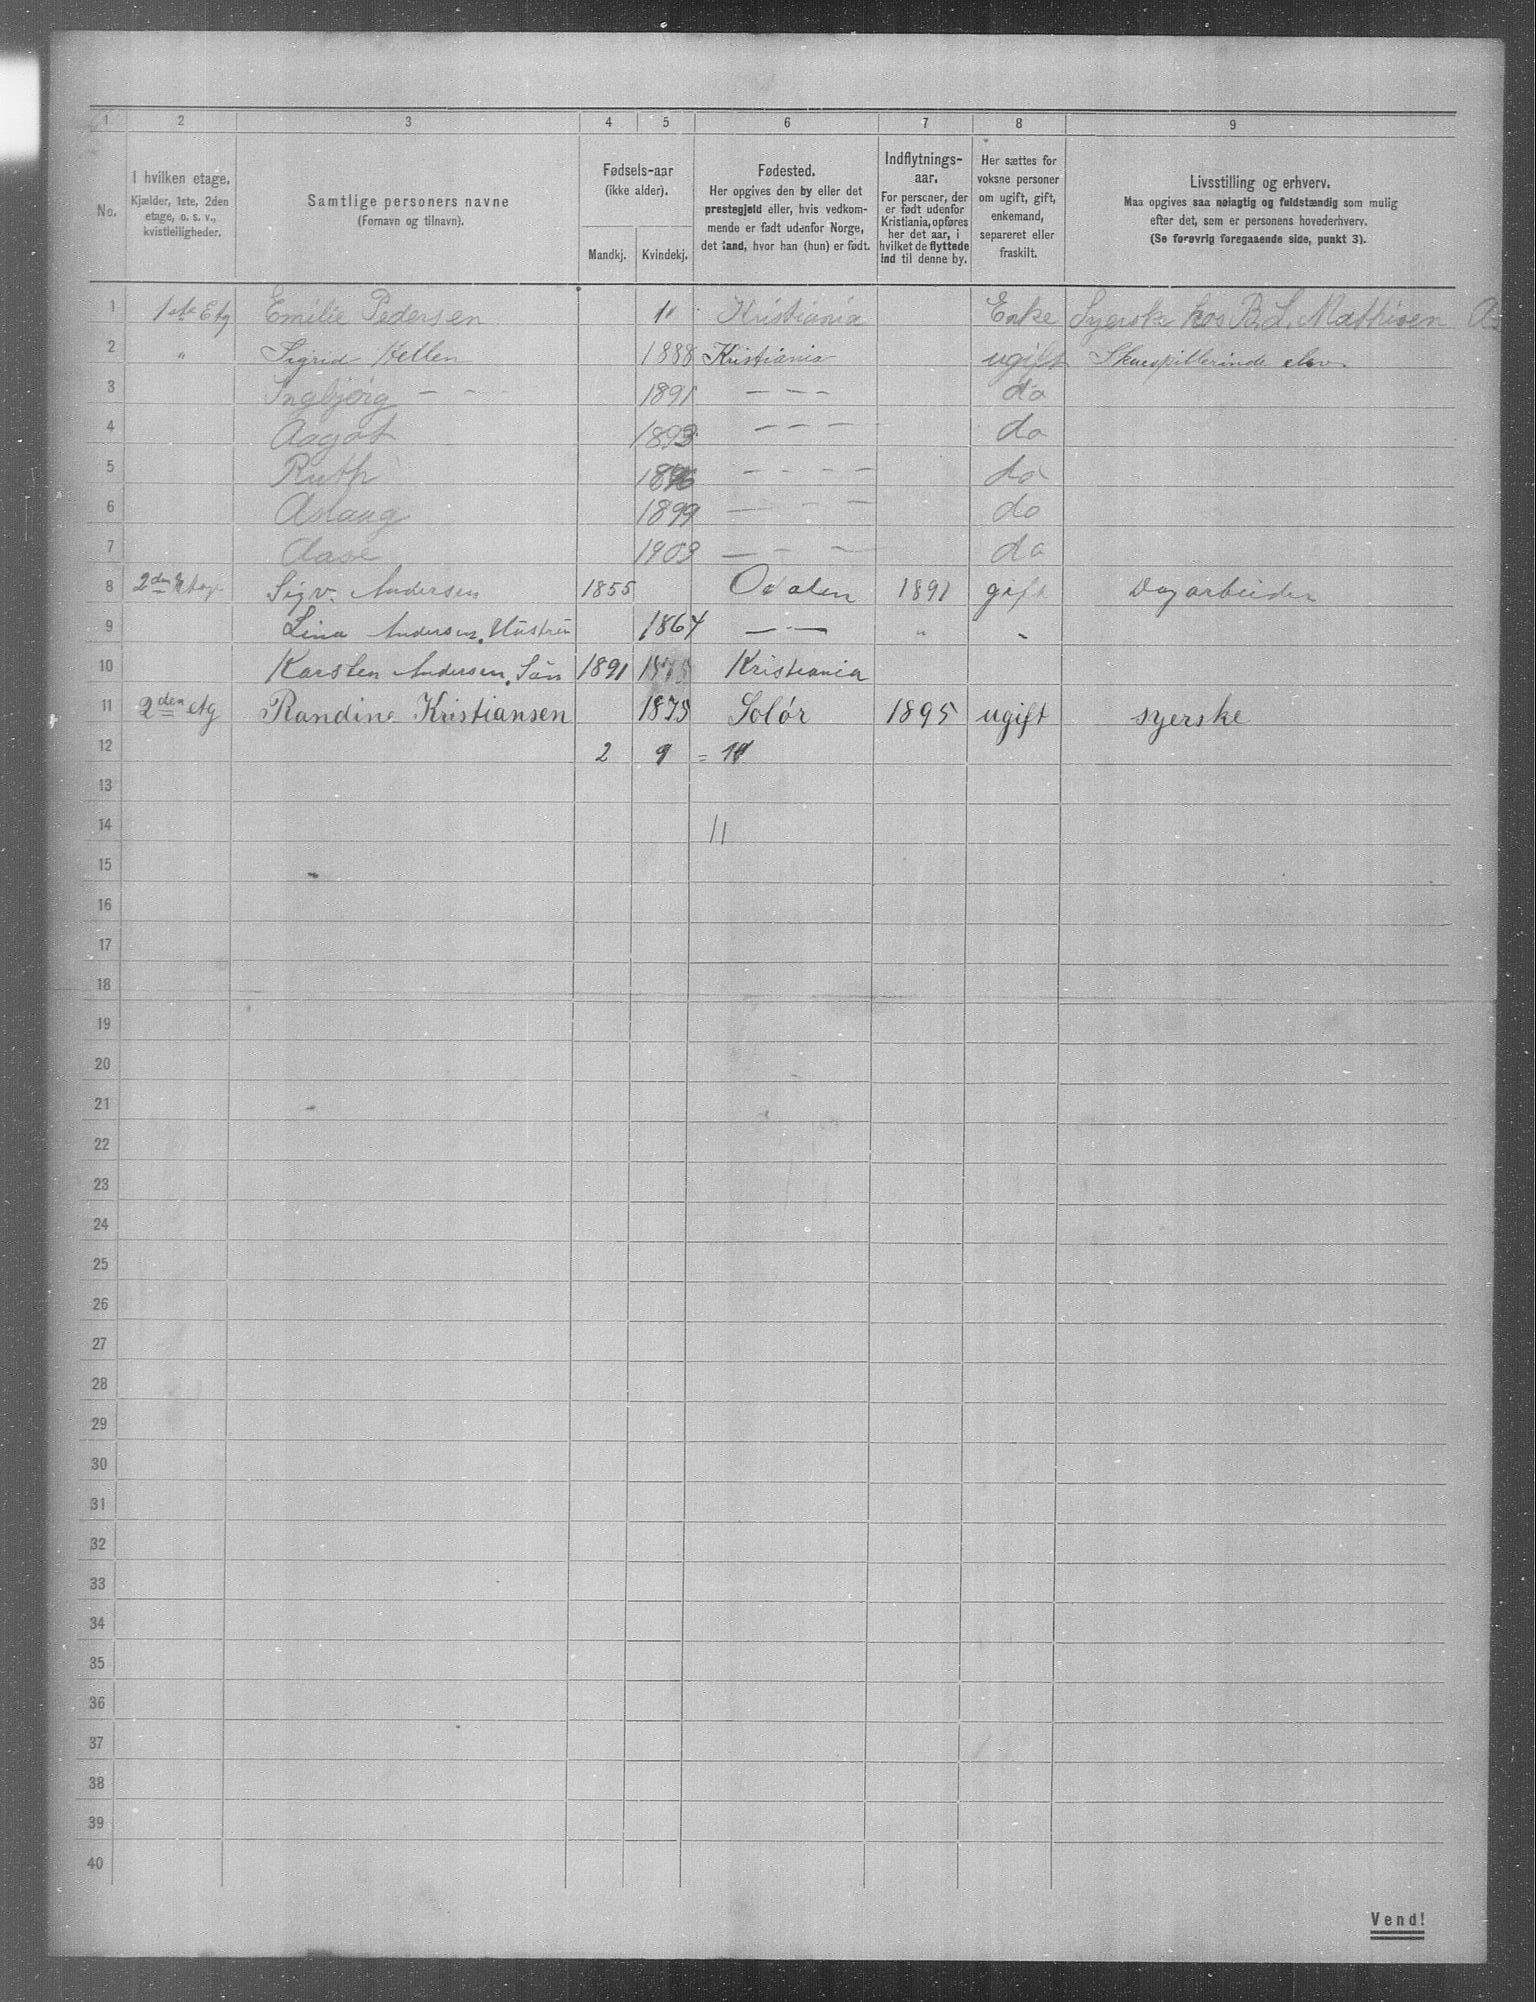 1 2 3 4 5 6 7 8 9
No.
I hvilken etage.
Kjælder, 1ste, 2den
etage, o. s. v.,
kvistleiligheder.
Samtlige personers navne
(Fornavn og tilnavn).
Fødsels-aar
(ikke alder).
Mandkj. Kvindekj.
Fødested.
Her opgives den by eller det
prestegjeld eller, hvis vedkom-
mende er født udenfor Norge,
det land, hvor han (hun) er født.
Indflytnings-
aar.
For personer, der
er født udenfor
Kristiania, opføres
her det aar, i
hvilket de flyttede
ind til denne by.
Her sættes for
voksne personer
om ugift, gift,
enkemand,
separeret eller
fraskilt.
Livsstilling og erhverv.
Maa opgives saa nøiagtig og fuldstændig som mulig
efter det, som er personens hovederhverv.
(Se forøvrig foregaaende side, punkt 3).
1 1ste Etg Emilie Pedersen Kristiania Enke Syerske hos B. L. Mathisen
2 " Sigrid Kellen 1888 Kristiania ugift Skuespillerinde elev
3 Ingbjørg — — 1891 — — — do
4 Aagot 1893 — — — — do
5 Ruth 1896 — — — — do
6 Aslaug 1899 — — — do
7 Aase 1903 — — — — do
8 2den Etag Sigv. Andersen 1855 Odalen 1891 gift Dagarbeider
9 Lina Andersen. Hustru 1864 — — " "
10 Karsten Andersen. Søn 1891 1875 Kristiania
11 2den etg Randine Kristiansen 1875 Solør 1895 ugift syerske
12 2 9 = 11
13
14 11
15
16
17
18
19
20
21
22
23
24
25
26
27
28
29
30
31
32
33
34
35
36
37
38
39
40
Vend!